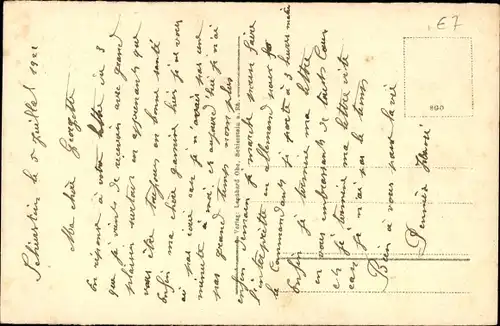 Schierstein le 5 Juillet 1921
Ma chère Georgette
En réponse à votre lettre du 3
que je viens de recevoir avec grand
plaisir surtout en apprenant que
vous êtes toujours en bonne santé
Enfin ma chère gamine hier je ne vous
ai pas car je n'avais pas une
minute à moi et aujourd'hui je n'ai
pas grand temps non plus
enfin demain je vais faire
l'interprète en allemand pour
le Commandant je parte à 3 heures
Enfin je termine ma lettre
en vous embrassant de tout Cœur
et je termine ma lettre vite
car je n'ai pas le temps
Bien à vous pour la vie
Verlag: Leonhard Ohr, Schierstein a. Rh.
860
E7